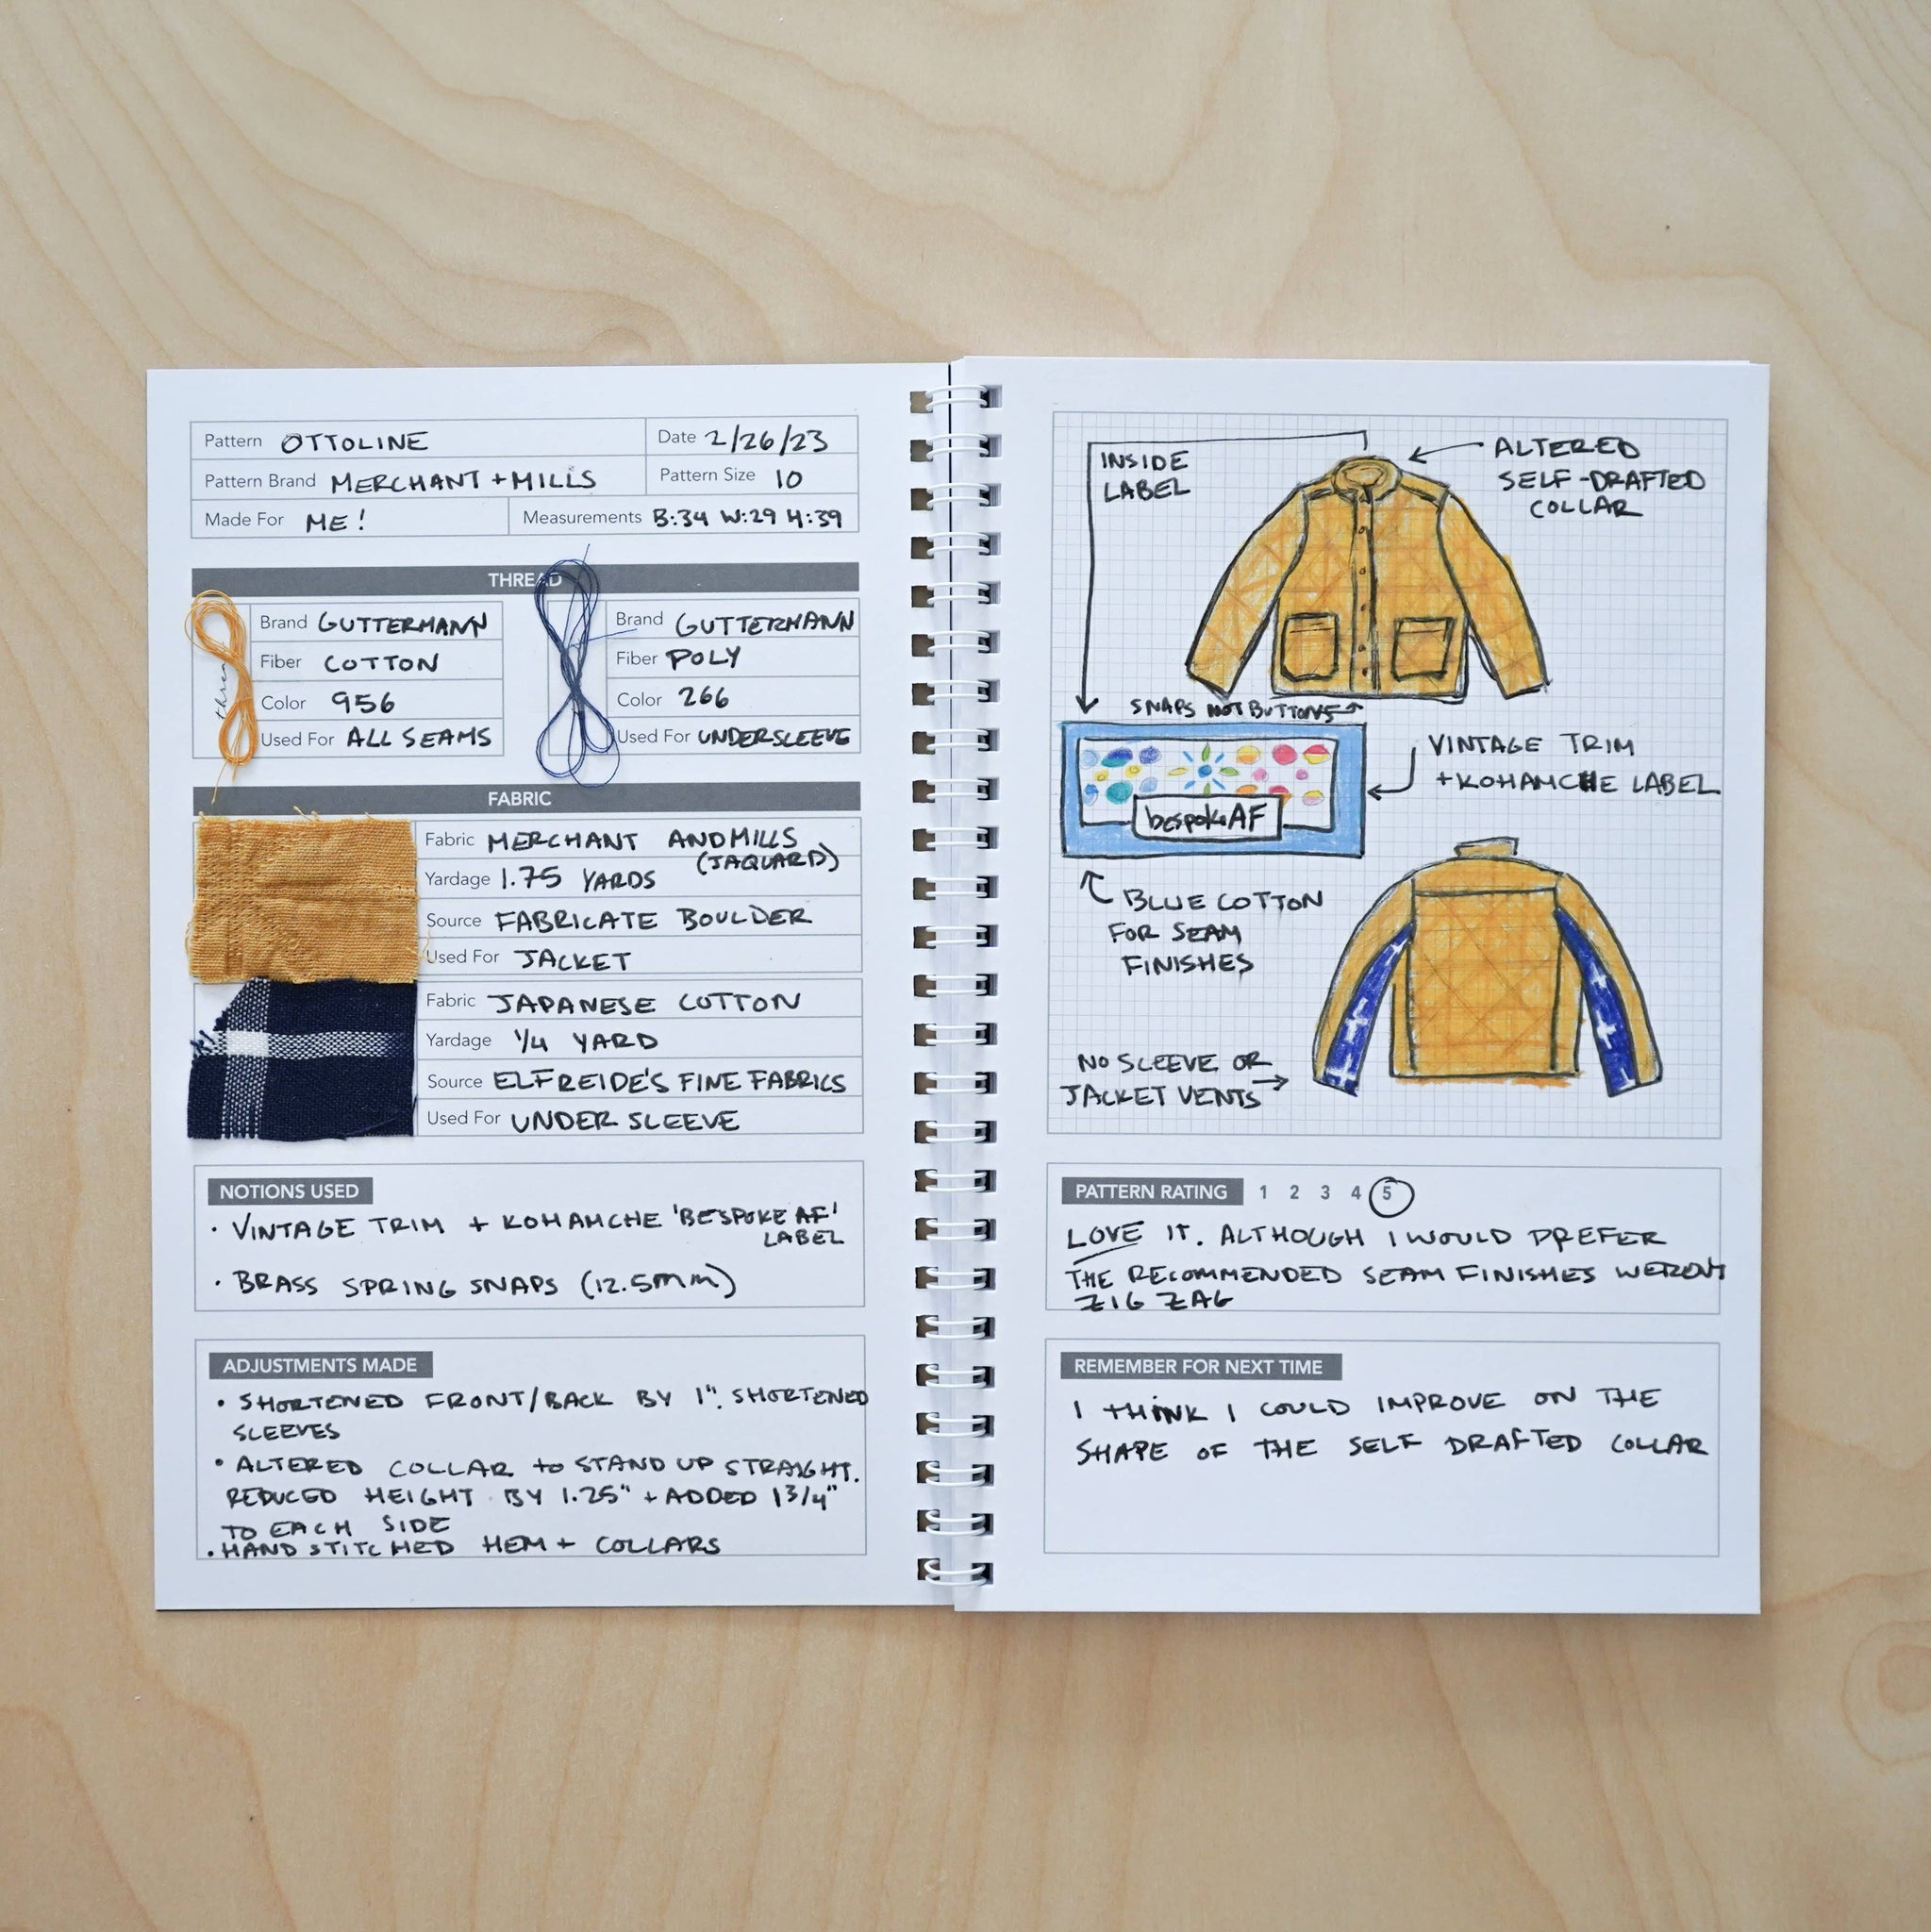 Pattern OTTOLINE
Date 2/26/23
Pattern Brand MERCHANT + MILLS
Pattern Size 10
Made For ME!
Measurements B:34 W:29 H:39
THREAD
Brand GUTTERMANN
Fiber COTTON
Color 956
Used For ALL SEAMS
Brand GUTTERMANN
Fiber POLY
Color 266
Used For UNDERSLEEVE
FABRIC
Fabric MERCHANT ANDMILLS
(JAQUARD)
Yardage 1.75 YARDS
Source FABRICATE BOULDER
Used For JACKET
Fabric JAPANESE COTTON
Yardage 1/4 YARD
Source ELFREIDE'S FINE FABRICS
Used For UNDER SLEEVE
NOTIONS USED
• VINTAGE TRIM + KOHAMCHE 'BESPOKE AF'
LABEL
• BRASS SPRING SNAPS (12.5mm)
ADJUSTMENTS MADE
• SHORTENED FRONT/BACK BY 1". SHORTENED
SLEEVES
• ALTERED COLLAR to STAND UP STRAIGHT.
REDUCED HEIGHT BY 1.25" + ADDED 1 3/4"
TO EACH SIDE
• HAND STITCHED HEM + COLLARS
INSIDE
LABEL
ALTERED
SELF-DRAFTED
COLLAR
SNAPS NOT BUTTONS
bespokeAF
VINTAGE TRIM
+KOHAMCHE LABEL
BLUE COTTON
FOR SEAM
FINISHES
NO SLEEVE OR
JACKET VENTS
PATTERN RATING 1 2 3 4 5
LOVE IT. ALTHOUGH I WOULD PREFER
THE RECOMMENDED SEAM FINISHES WEREN'T
ZIG ZAG
REMEMBER FOR NEXT TIME
I THINK I COULD IMPROVE ON THE
SHAPE OF THE SELF DRAFTED COLLAR